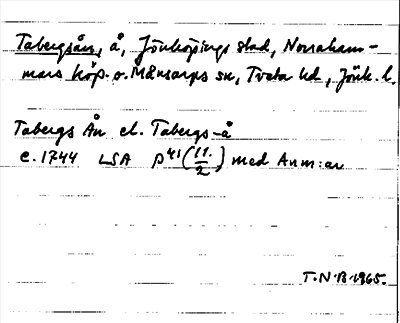 Tabergsån, å, Jönköpings stad, Norraham-
mars köp. o. Månsarps sn, Tveta hd, Jönk. l.
Tabergs Ån el. Tabergs-å
c. 1744 LSA P41 (11./2) med Anm:ar
T.N.B. 1965.